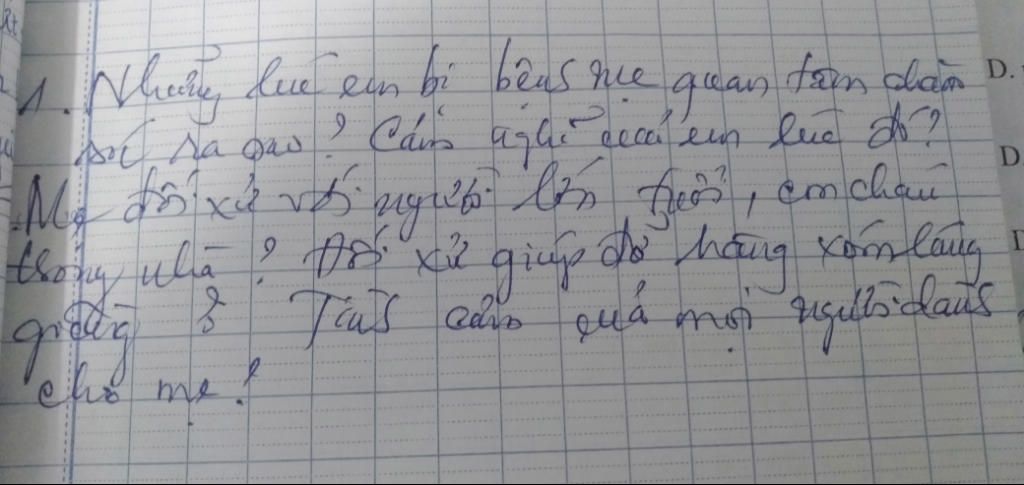 1. Những lúc em bị bệnh mẹ quan tâm chăm D.
sóc ra sao? Cảm nghĩ của em lúc đó? D
Mẹ đối xử với người lớn tuổi, em cháu
trong nhà? Đối xử giúp đỡ hàng xóm láng
giềng? Tình cảm của mọi người dành
cho mẹ?